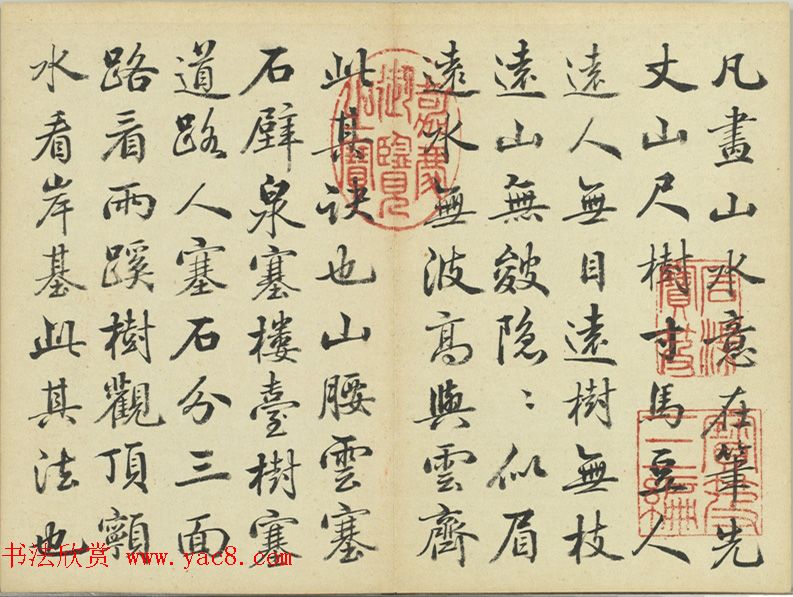 凡畫山水意在筆先
丈山尺樹寸馬豆人
遠人無目遠樹無枝
遠山無皴隐〻似眉
遠水無波高與雲齊
此其訣也山腰雲塞
石壁泉塞樓臺樹塞
道路人塞石分三面
路看兩蹊樹觀頂𩕳
水看岸基此其法也
御覽
书法欣赏 www.yac8.com